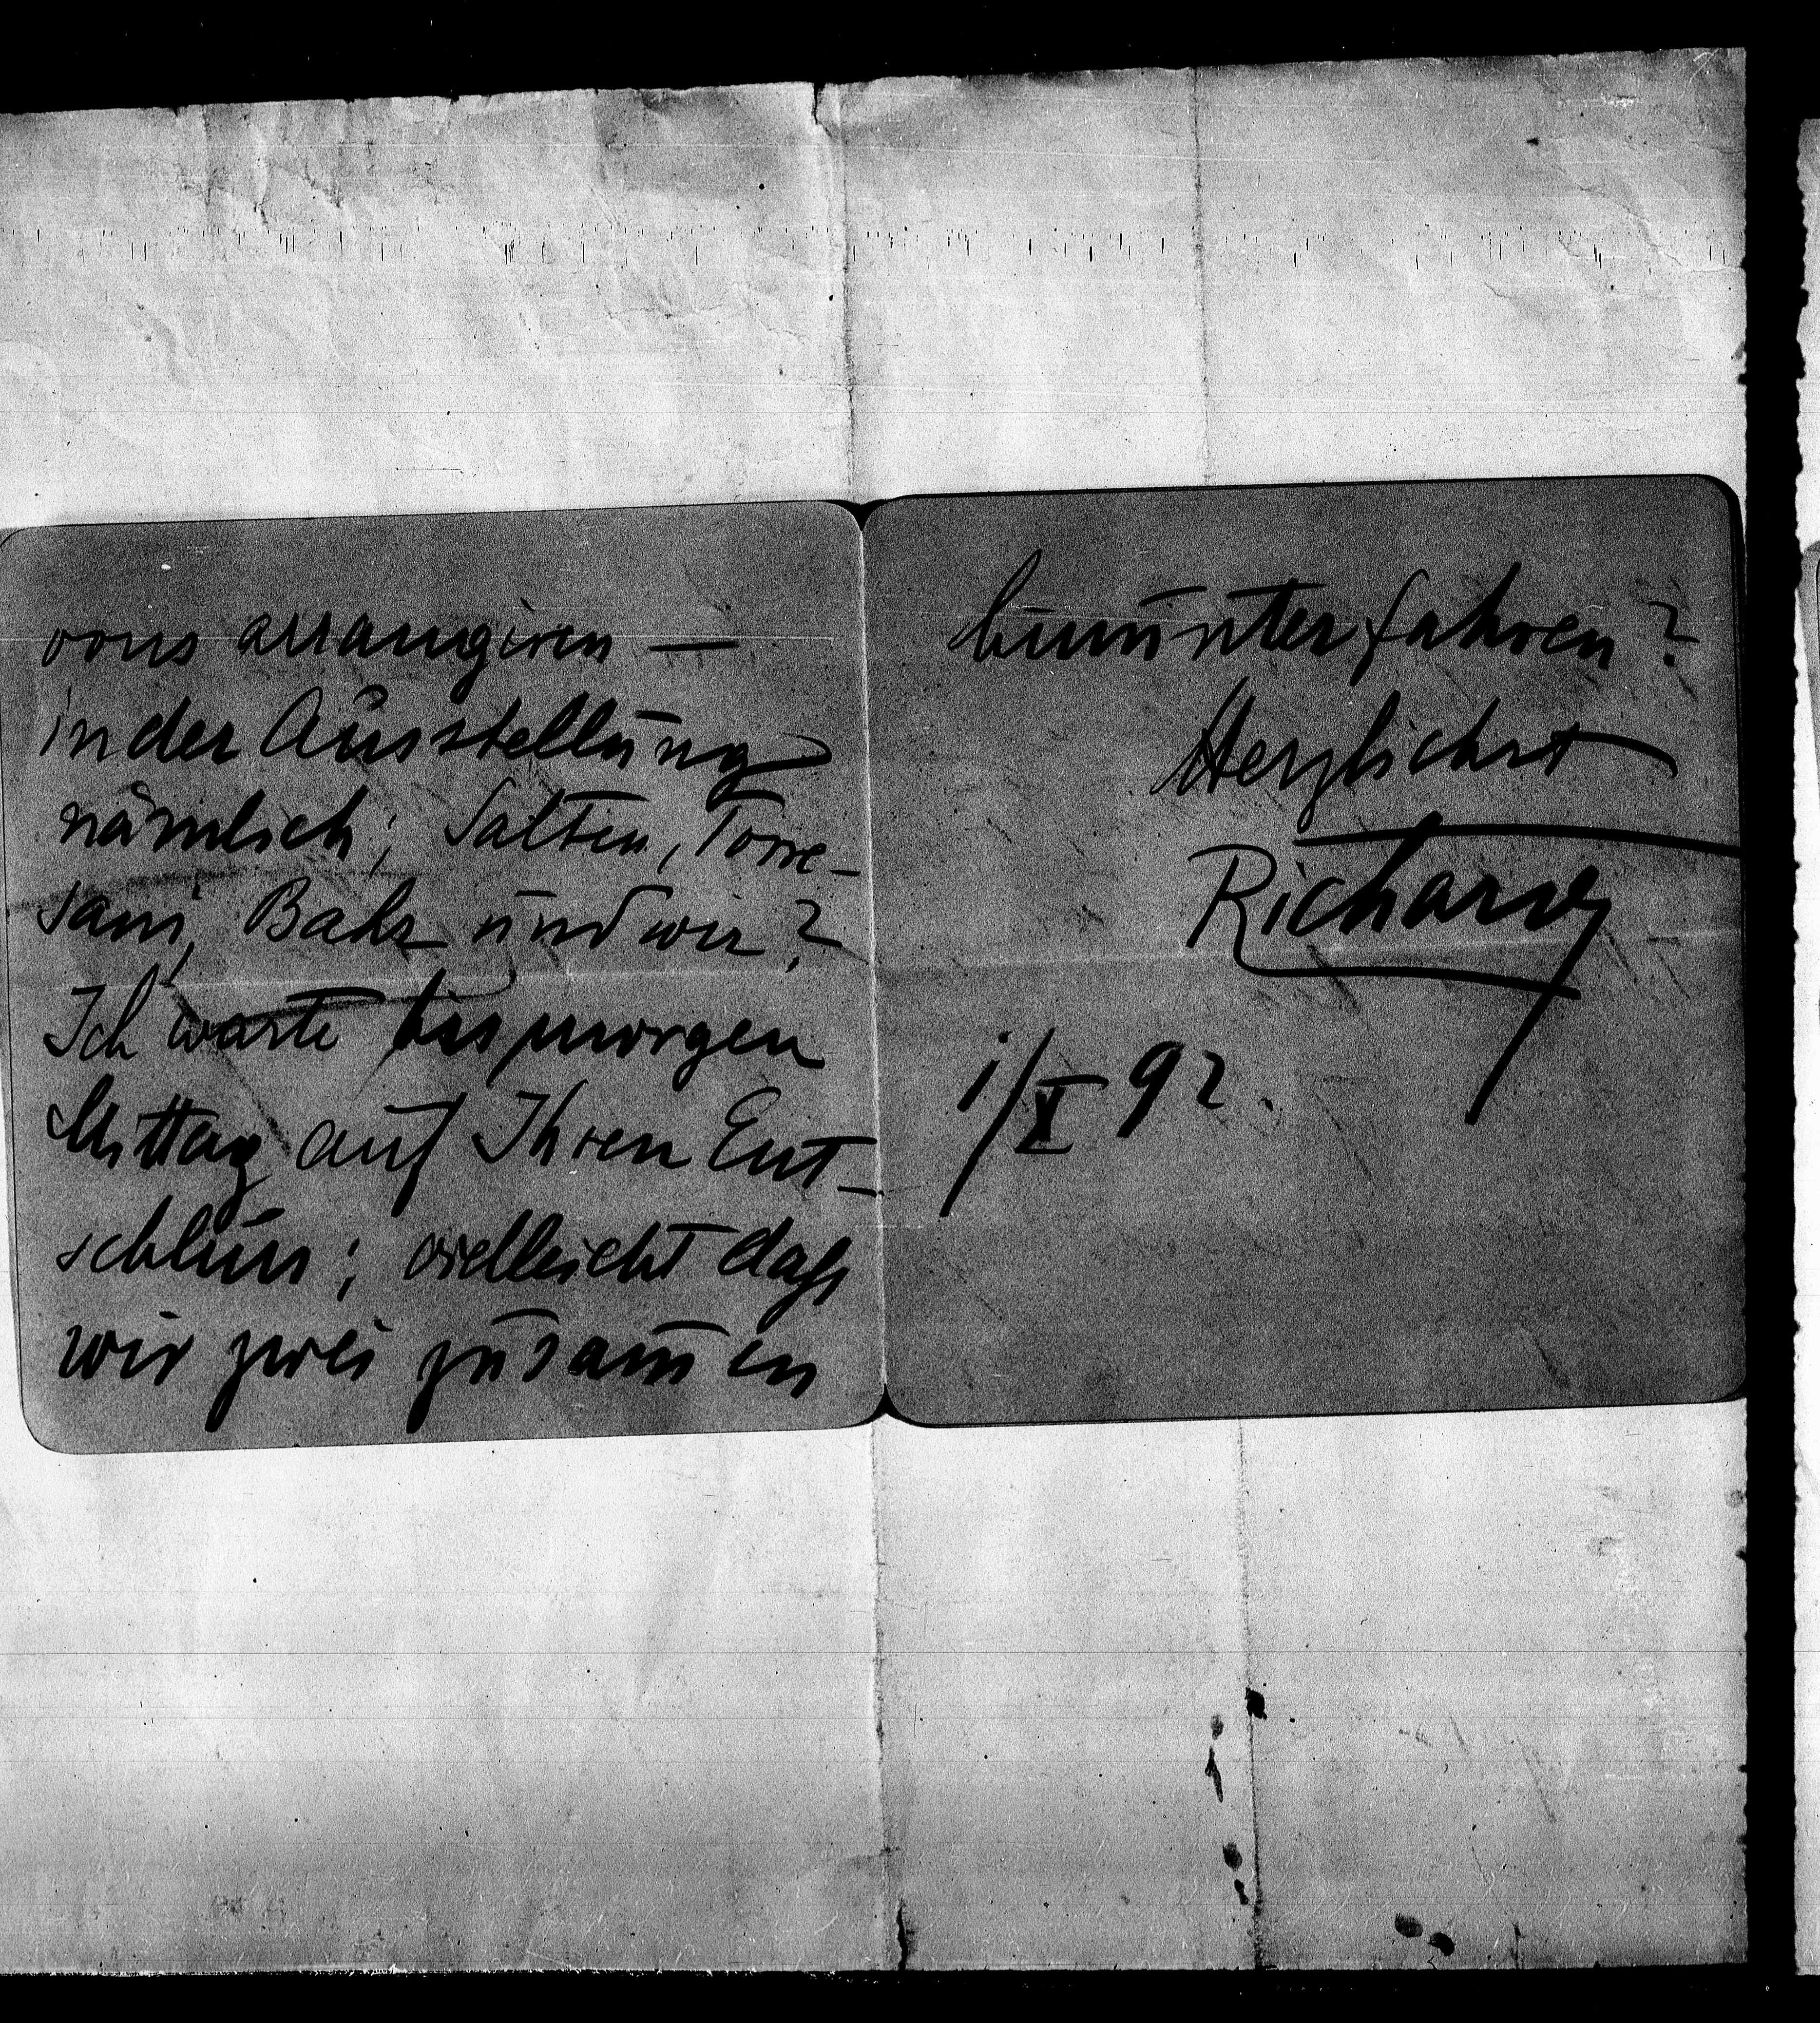 vous arrangiren —
in der Ausstellung
nämlich; Salten, Torre-
sani, Bahr und wir?
Ich warte bis morgen
Mittag auf Ihren Ent-
schluss; vielleicht daß
wir zwei zusam̄en
hinunterfahren?
Herzlichst
Richard
1/X 92.